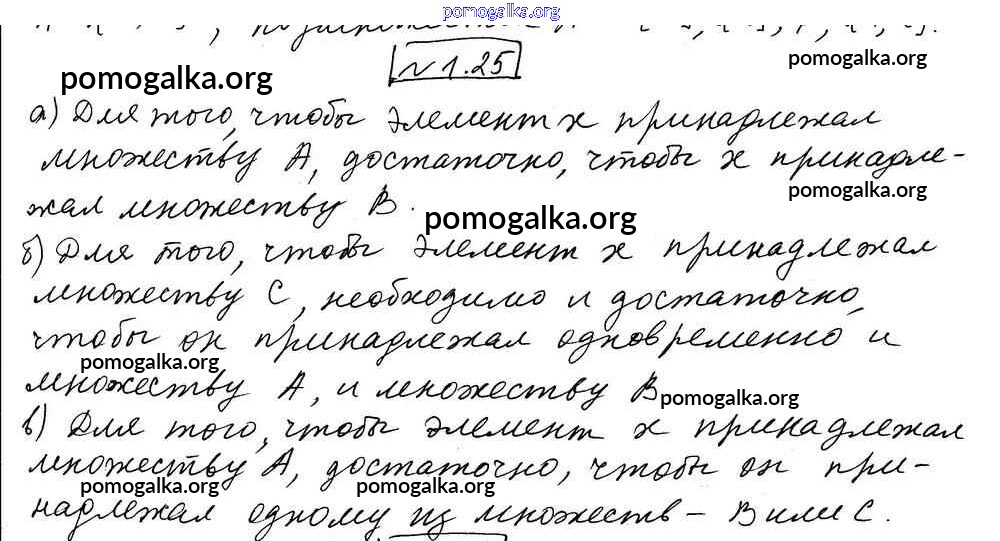 pomogalka.org
№ 1.25
pomogalka.org
pomogalka.org
а) Для того, чтобы элемент х принадлежал
множеству А, достаточно, чтобы х принадле-
pomogalka.org
жал множеству В.
pomogalka.org
б) Для того, чтобы элемент х принадлежал
множеству С, необходимо и достаточно,
чтобы он принадлежал одновременно и
pomogalka.org
множеству А, и множеству В
pomogalka.org
в) Для того, чтобы элемент х принадлежал
множеству А, достаточно, чтобы он при-
pomogalka.org
pomogalka.org
надлежал одному из множеств – В или С.